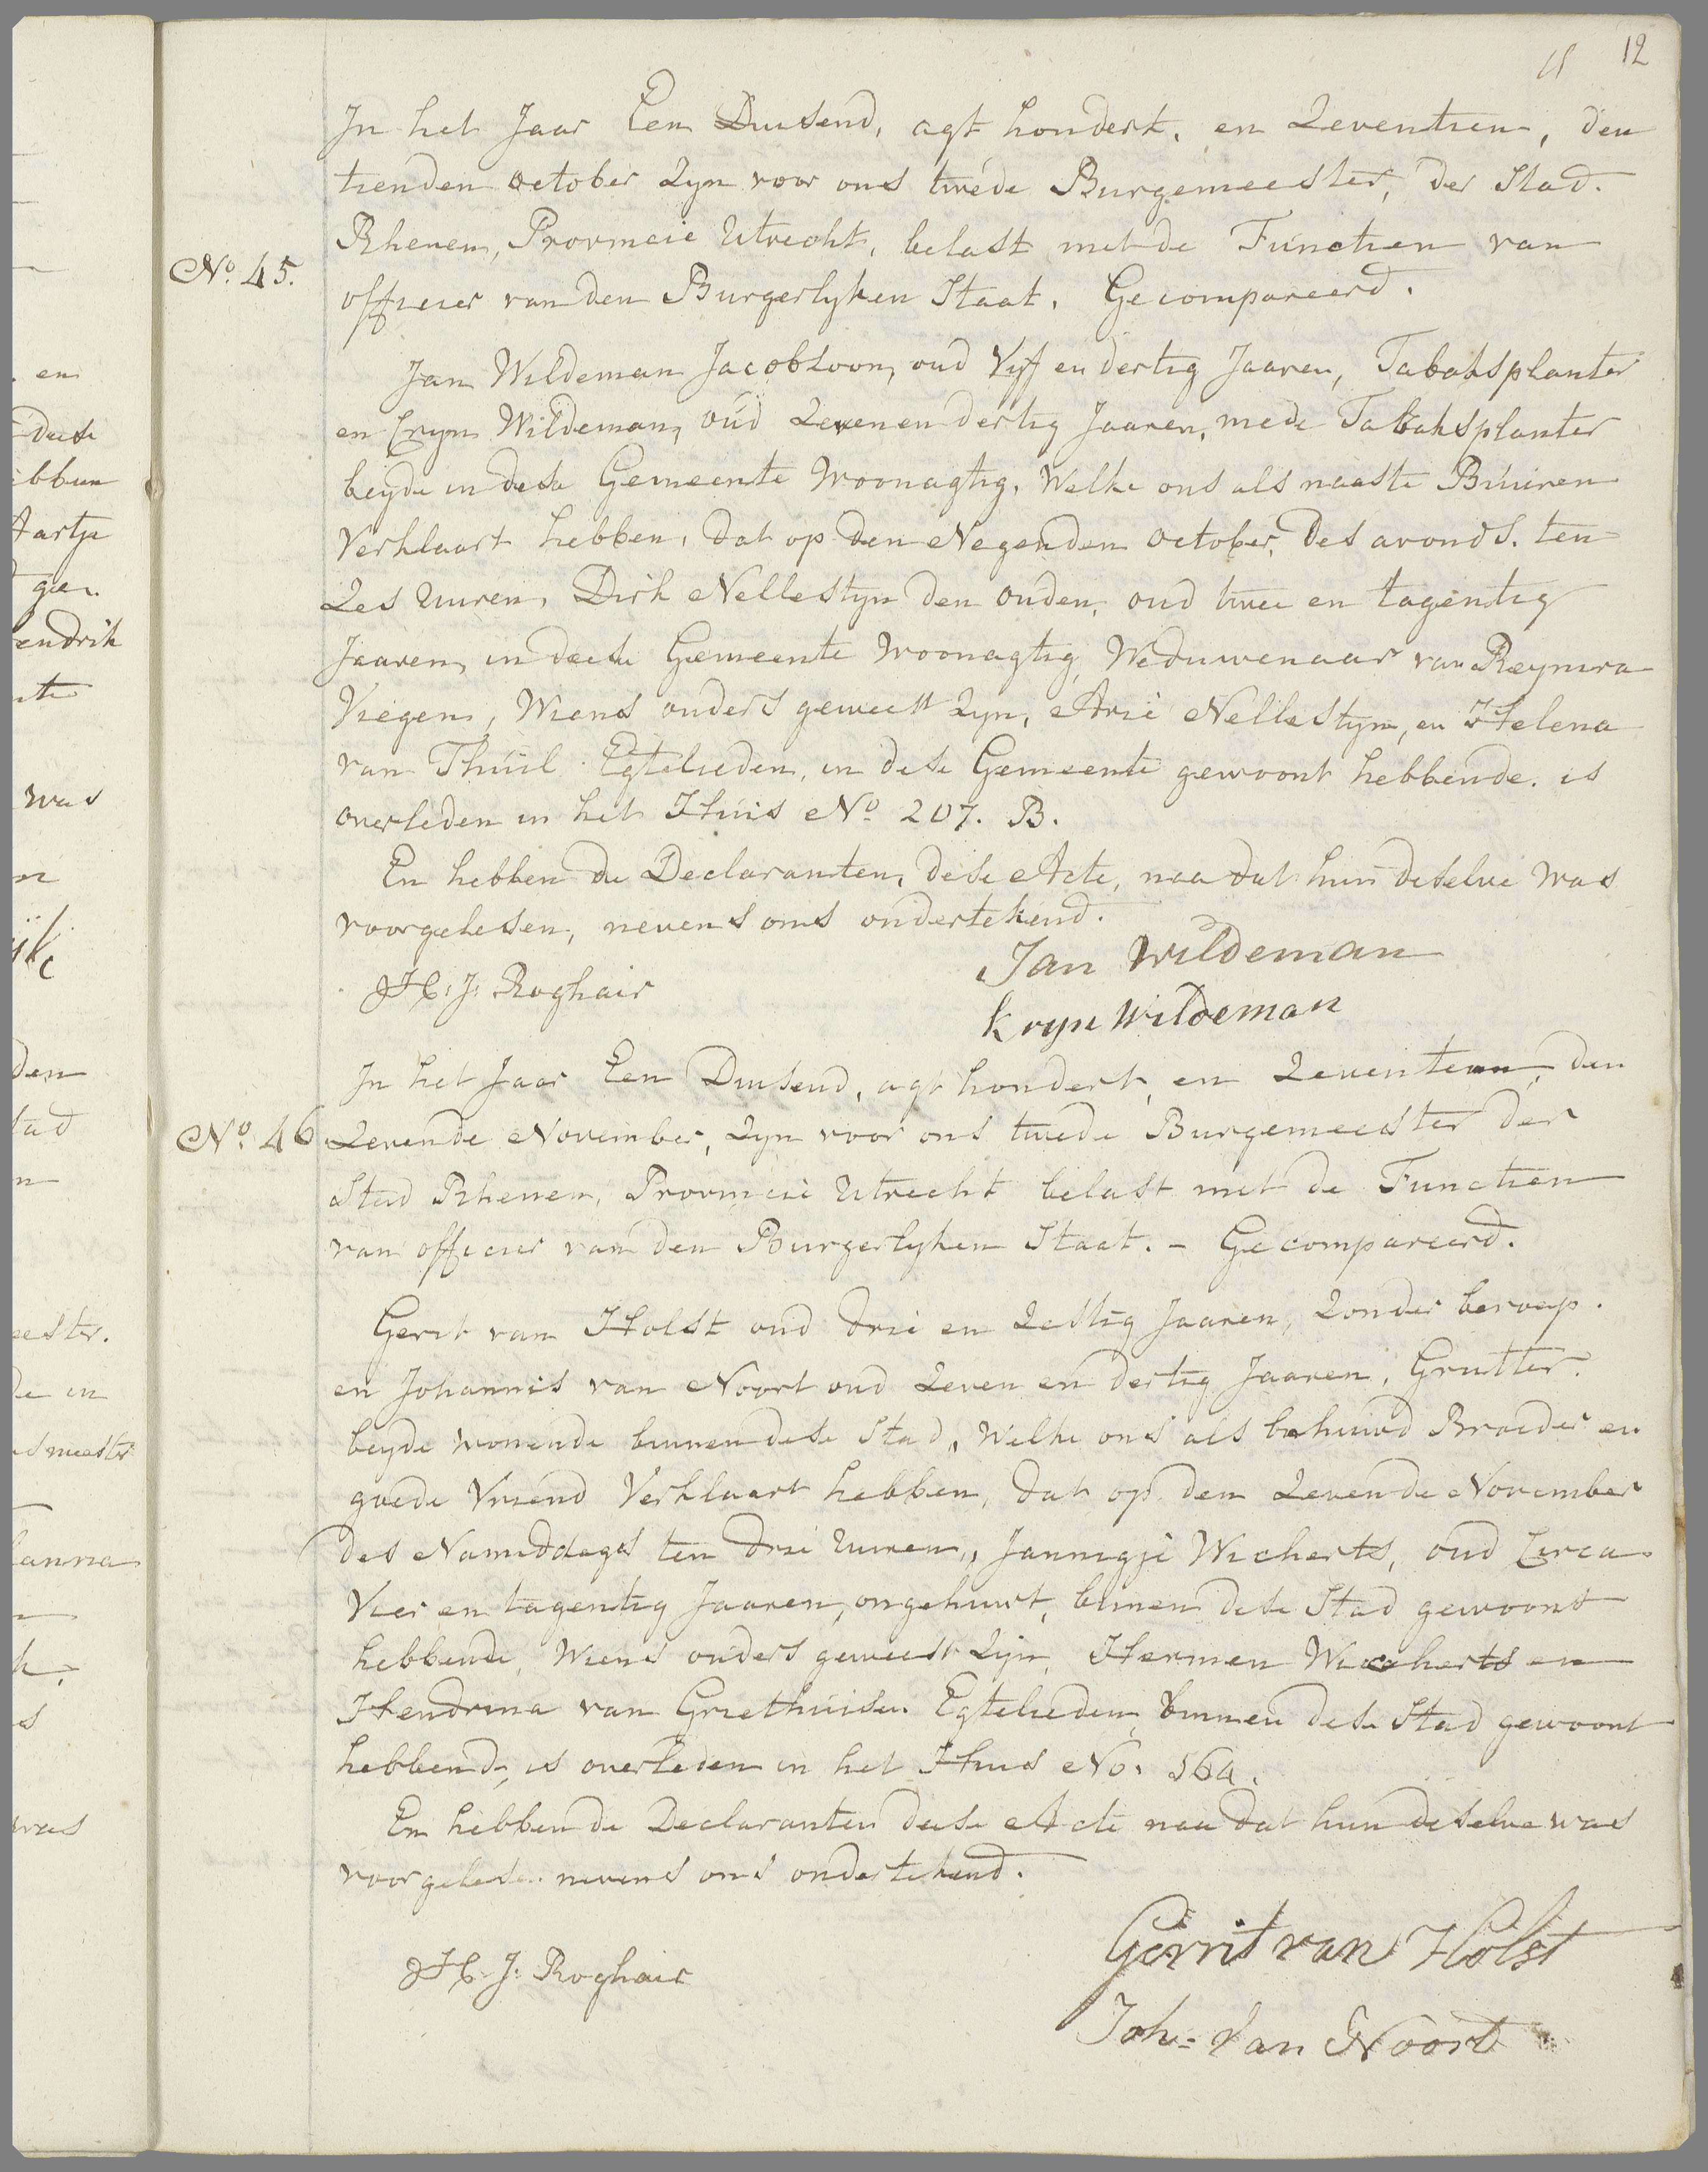 11 12
In het Jaar Een Duisend, agt hondert, en Zeventien, den
tienden october Zyn voor ons twede Burgemeester, der Stad.
Rhenen, Provincie Utrecht, belast met de Functien van
No. 45.
officier van den Burgerlyken Staat. Gecompareerd.
Jan Wildeman Jacobzoon, oud Vyf en dertig Jaaren, Tabaksplanter
en Cryn Wildeman, oud Zeven en dertig Jaaren, mede Tabaksplanter
beyde in dese Gemeente Woonagtig. Welke ons als naaste Buuren
Verklaart hebben, dat op den Negenden october, des avonds. ten
Zes Uuren, Dirk Nellestyn den ouden, oud twee en tagentig
Jaaren, in deese Gemeente Woonagtig, Weduwenaar van Reymira
Viegen, Wiens ouders geweest Zyn, Arie Nellestyn, en Helena
van Thuil Egtelieden, in dese Gemeente gewoont hebbende. is
overleden in het Huis No. 207. B.
En hebben de Declaranten, dese Acte, naa dat hun deselve was
voorgelesen, nevens ons ondertekend.
Jan Wildeman
H. C. J. Roghair
Kryn Wildeman
In het Jaar Een Duisend, agt hondert, en Zeventien, den
No. 46
Zevende November, Zyn voor ons twede Burgemeester der
Stad Rhenen, Provincie Utrecht belast met de Functien
van officier van den Burgerlyken Staat. - Gecompareerd.
Gerit van Holst oud drie en Zestig Jaaren, Zonder beroep.
en Johannis van Noort oud Zeven en dertig Jaaren, Grutter.
beyde wonende binnen dese Stad, Welke ons als behuwd Broeder en
goede Vriend Verklaart hebben, dat op den Zevende November
des Namiddags ten drie Uuren, Jannigje Wicherts, oud Circa
Vier en tagentig Jaaren, ongehuwt, binnen dese Stad gewoont
hebbende, Wiens ouders geweest Zyn, Hermen Wicherts en
Hendrina van Griethuisen Egtelieden, binnen dese Stad gewoont
hebbende, is overleden in het Huis No. 564.
En hebben de Declaranten deese Acte naa dat hun deselve was
voorgelesen nevens ons ondertekend.
Gerrit van Holst
H. C. J. Roghair
Joh= Van Noort